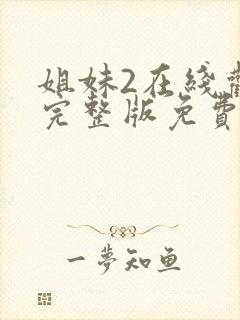 姐妹2在线
完整版免费
一梦知鱼